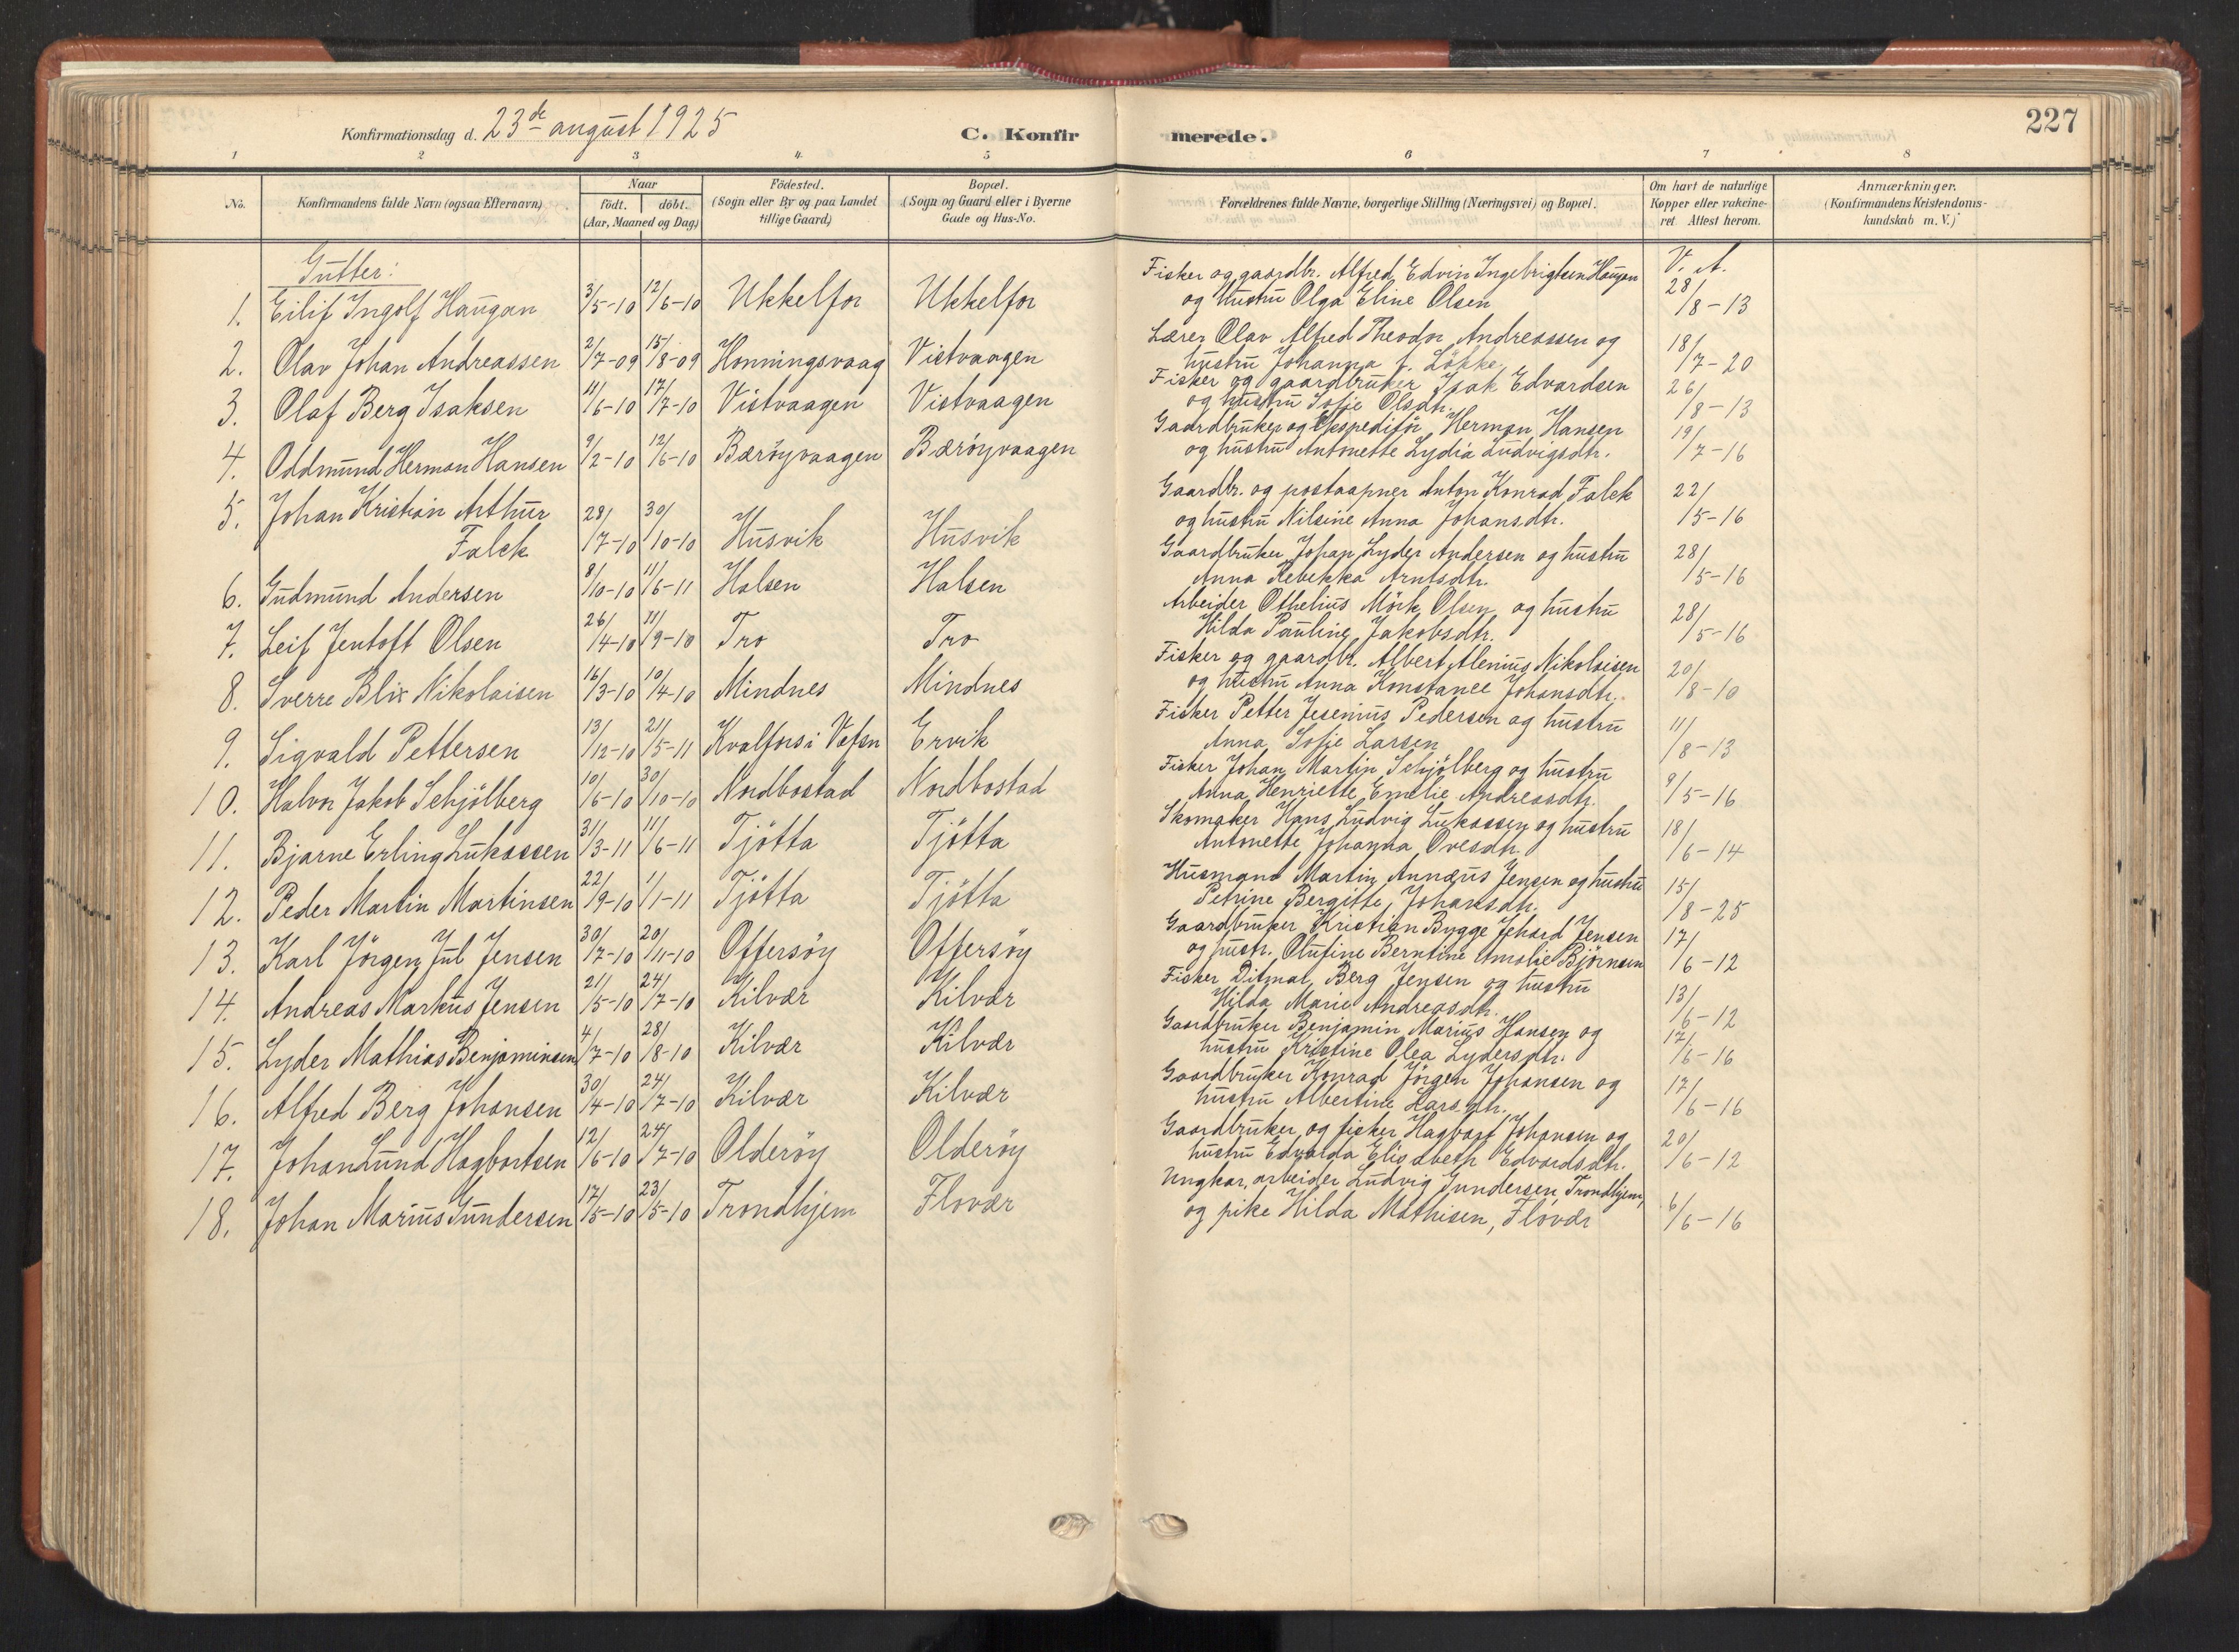 Konfirmationsdag d. 23de august 1925
C. Konfir
merede.
227
1 2 3 4 5 6 7 8
No. Konfirmandens fulde Navn (ogsaa Efternavn) Naar födt. döbt. (Aar, Maaned og Dag) Födested. (Sogn eller By og paa Landet tillige Gaard) Bopæl. (Sogn og Gaard eller i Byerne Gade og Hus-No. Forældrenes fulde Navne, borgerlige Stilling (Næringsvei) og Bopæl. Om havt de naturlige Kopper eller vakcineret. Attest herom. Anmærkninger. (Konfirmandens Kristendomskundskab m. V.)
Gutter: V. A.
1. Eilif Ingolf Haugan 3/5-10 12/6-10 Ukkelfor Ukkelfor Fisker og gaardbr. Alfred Edvin Ingebrigtsen Haugan
og hustru Olga Eline Olsen 28/8-13
2. Olav Johan Andreassen 2/7-09 15/8-09 Honningsvaag Vistvaagen Lærer Olav Alfred Theodor Andreassen og
hustru Johanna f. Løkke 18/7-20
3. Olaf Berg Isaksen 11/6-10 17/7-10 Vistvaagen Vistvaagen Fisker og gaardbruker Isak Edvardsen
og hustru Sofie Olsdtr. 26/8-13
4. Oddmund Herman Hansen 9/2-10 12/6-10 Bærøyvaagen Bærøyvaagen Gaardbruker og Ekspeditør Herman Hansen
og hustru Antonette Lydia Ludvigsdtr. 19/7-16
5. Johan Kristian Arthur Gaardbr. og postaapner Anton Konrad Falck
Falck 28/7-10 30/10-10 Husvik Husvik og hustru Nilsine Anna Johansdtr. 22/5-16
6. Gudmund Andersen 8/10-10 11/6-11 Halsen Halsen Gaardbruker Johan Lyder Andersen og hustru
Anna Rebekka Arntsdtr. 28/5-16
7. Leif Jentoft Olsen 26/4-10 11/9-10 Tro Tro Arbeider Othelius Mörk Olsen og hustru
Hilda Pauline Jakobsdtr. 28/5-16
8. Sverre Blix Nikolaisen 16/3-10 10/4-10 Mindnes Mindnes Fisker og gaardbr. Albert Alenius Nikolaisen
og hustru Anna Konstance Johansdtr. 20/8-10
9. Sigvald Pettersen 13/12-10 21/5-11 Kvalfors i Vefsn Ervik Fisker Petter Jesenius Pedersen og hustru
Anna Sofie Larsen 11/8-13
10. Halvor Jakob Schjölberg 10/6-10 30/10-10 Nordbostad Nordbostad Fisker Johan Martin Schjölberg og hustru
Anna Henriette Emelie Andreasdtr. 9/5-16
11. Bjarne Erling Lukassen 31/3-11 11/6-11 Tjötta Tjötta Skomaker Hans Ludvig Lukassen og hustru
Antonette Johanna Ovesdtr. 18/6-14
12. Peder Martin Martinsen 22/9-10 1/1-11 Tjötta Tjötta Husmand Martin Annæus Jensen og hustru
Petrine Bergitte Johansdtr. 15/8-25
13. Karl Jörgen Jul Jensen 30/7-10 20/11-10 Offersöy Offersöy Gaardbruker Kristian Bygge Jehard Jensen
og hustr. Olufine Berntine Amalie Björnsen 17/6-12
14. Andreas Markus Jensen 21/5-10 24/7-10 Kilvær Kilvær Fisker Ditmar Berg Jensen og hustru
Hilda Marie Andreasdtr. 13/6-12
15. Lyder Mathias Benjaminsen 4/7-10 28/8-10 Kilvær Kilvær Gaardbruker Benjamin Marius Hansen og
hustru Kristine Olea Lydersdtr. 17/6-16
16. Alfred Berg Johansen 30/4-10 24/7-10 Kilvær Kilvær Gaardbruker Konrad Jörgen Johansen og
hustru Albertine Larsdtr. 17/6-16
17. Johan Lund Hagbartsen 12/6-10 24/7-10 Olderöy Olderöy Gaardbruker og fisker Hagbart Johansen og
hustru Edvarda Elisabeth Edvardsdtr. 20/6-12
18. Johan Marius Gundersen 17/5-10 23/5-10 Trondhjem Flovær Ungkar, arbeider Ludvig Gundersen, Trondhjem,
og pike Hilda Mathisen, Flovær 6/6-16